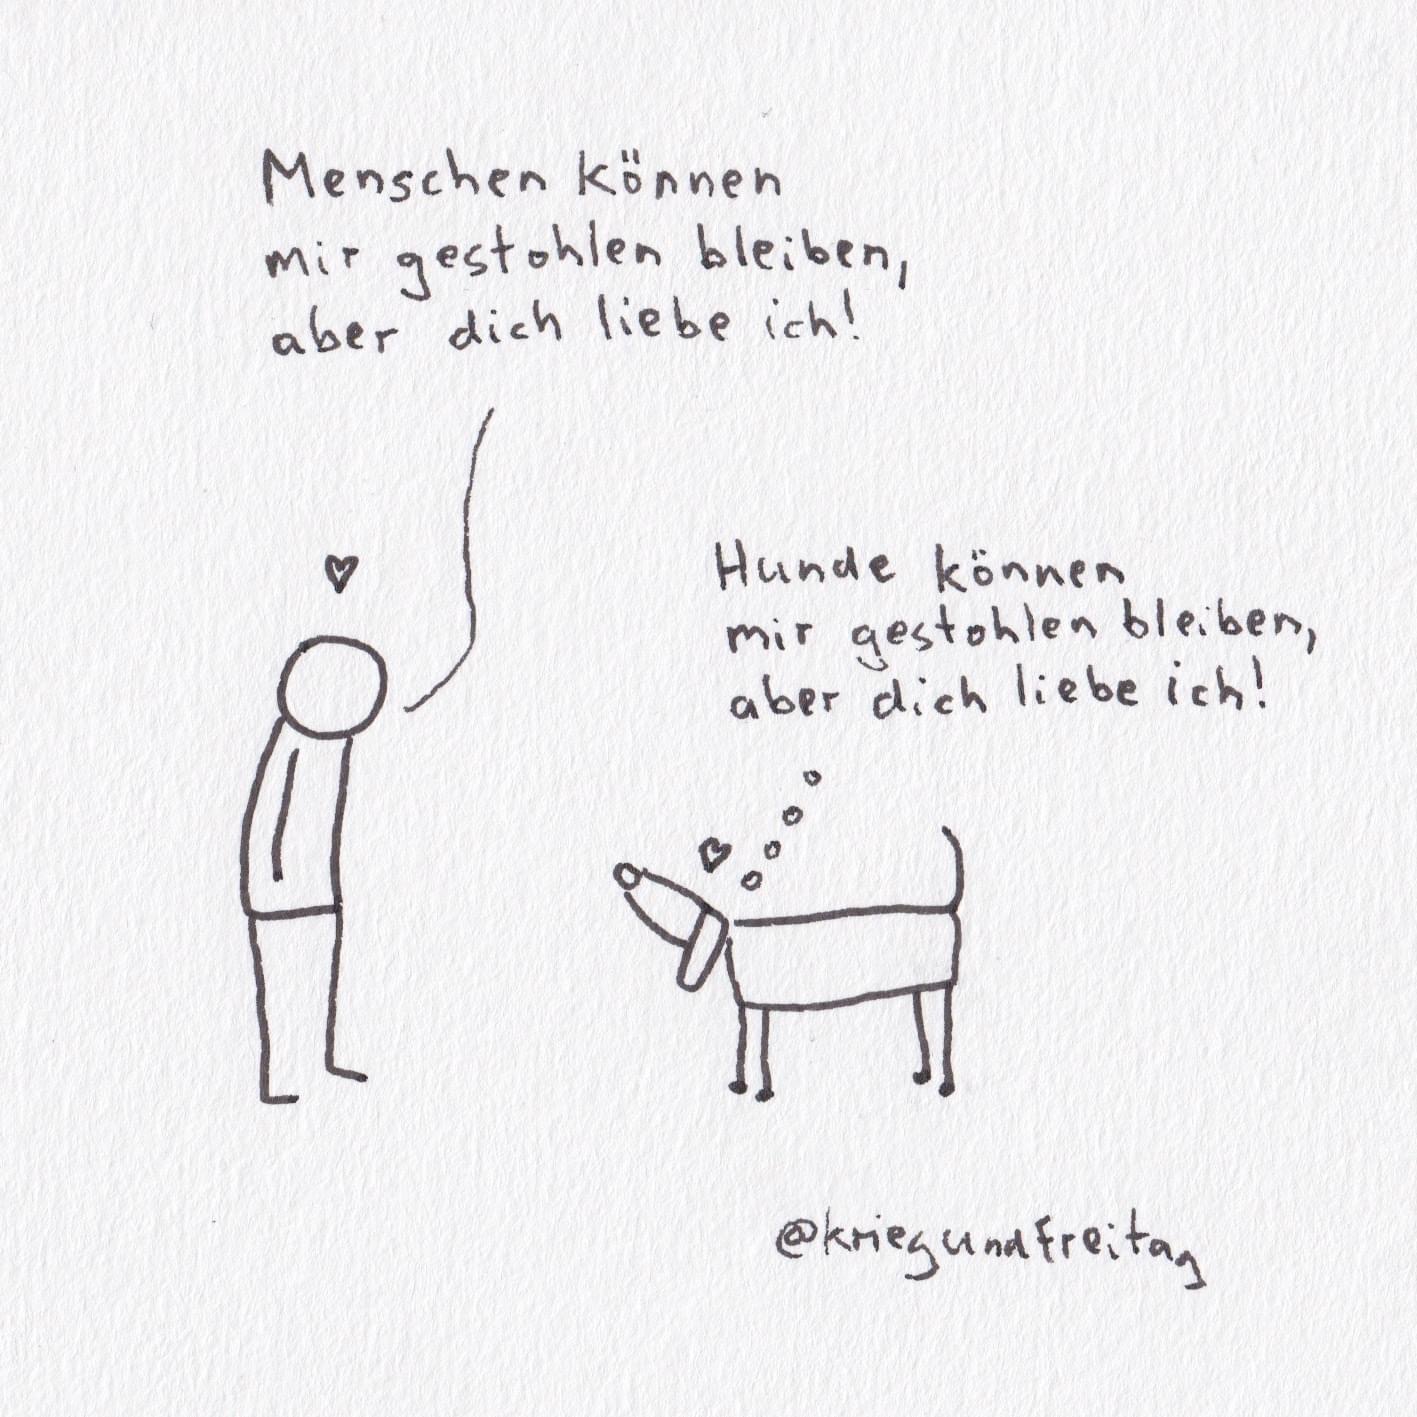 Menschen können
mir gestohlen bleiben,
aber dich liebe ich!
Hunde können
mir gestohlen bleiben,
aber dich liebe ich!
@kriegundfreitag